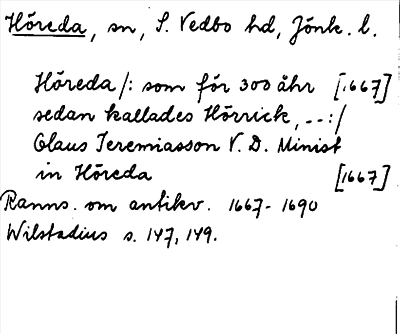 Höreda, sn, S. Vedbo hd, Jönk. l.
Höreda /: som för 300 åhr [1667]
sedan kallades Hörrick, --:/
Olaus Jeremiasson V. D. Minist
in Höreda [1667]
Ranns. om antikv. 1667-1690
Wilstadius s. 147, 149.